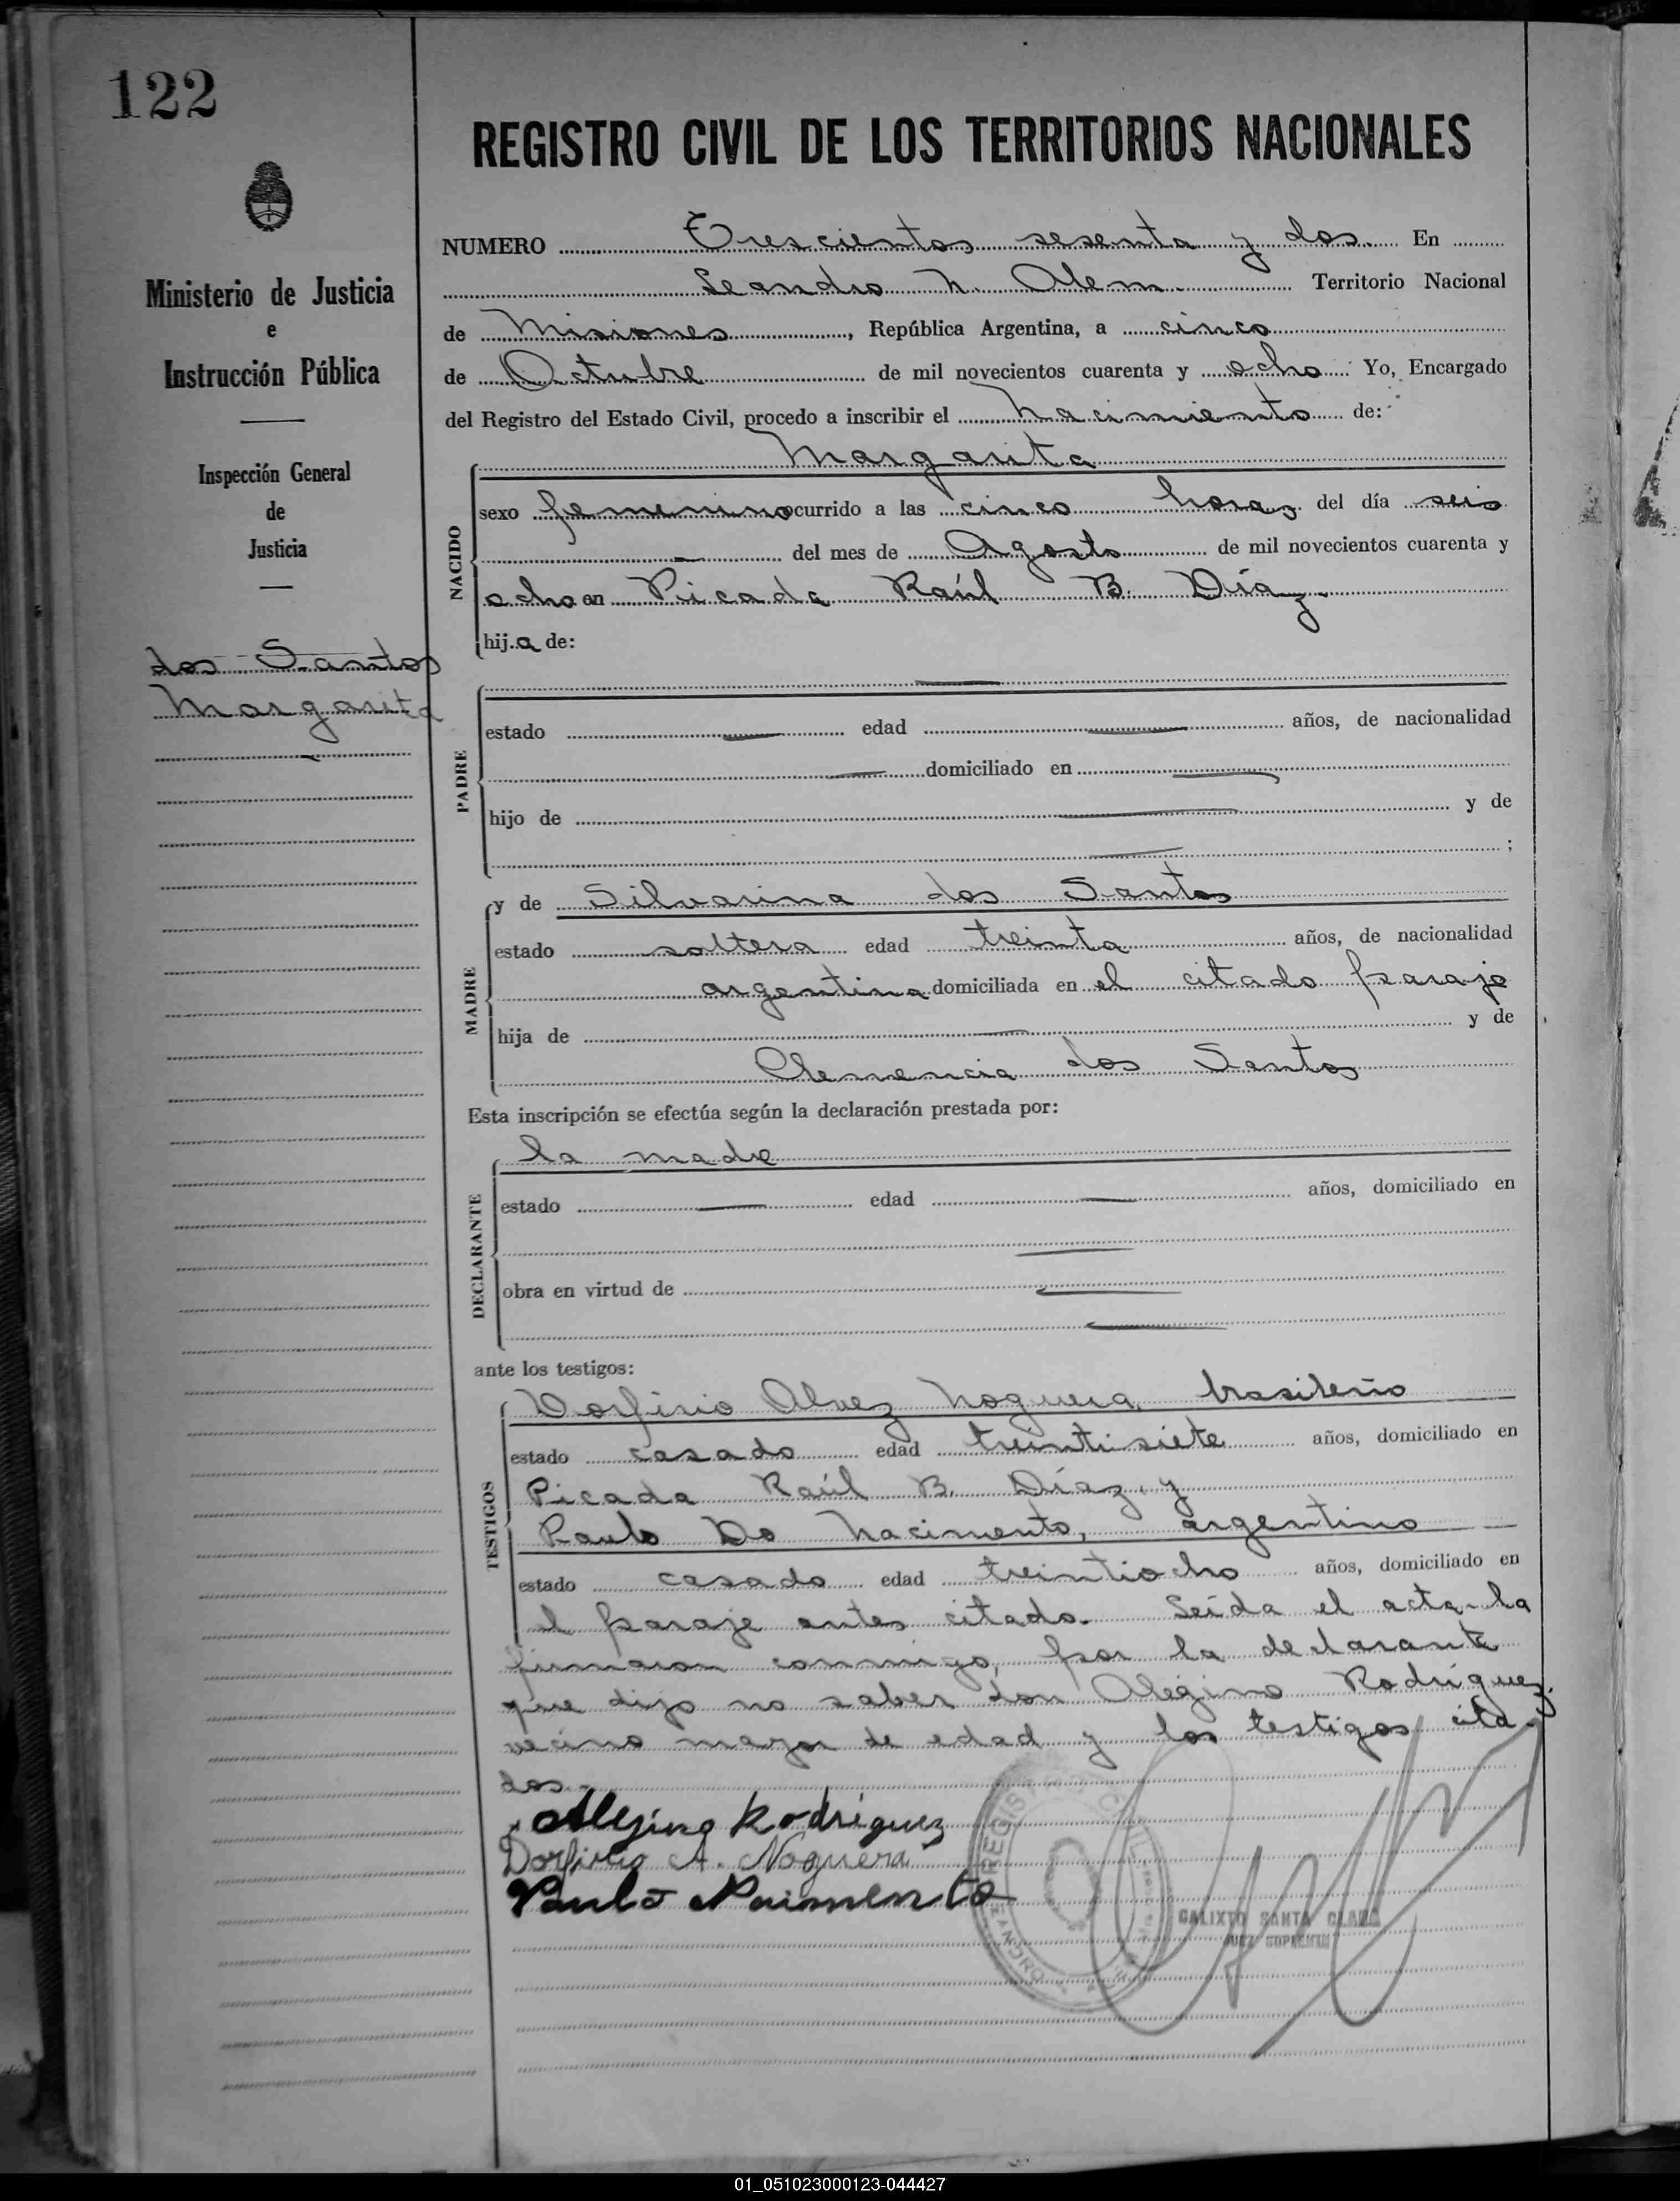 122
Ministerio de Justicia
e
Instrucción Pública
Inspección General
de
Justicia
dos Santos
Margarita
REGISTRO CIVIL DE LOS TERRITORIOS NACIONALES
NUMERO Trescientos sesenta y dos En
Leandro N. Alem. Territorio Nacional
de Misiones, República Argentina, a cinco
de Octubre de mil novecientos cuarenta y ocho Yo, Encargado
del Registro del Estado Civil, procedo a inscribir el Nacimiento de:
NACIDO
Margarita
sexo femenino ocurrido a las cinco horas del día seis
del mes de Agosto de mil novecientos cuarenta y
ocho en Picada Raúl B. Díaz.
hija de:
PADRE
estado edad años, de nacionalidad
domiciliado en
hijo de y de
;
MADRE
y de Silvarina dos Santos
estado soltera edad treinta años, de nacionalidad
argentina domiciliada en el citado paraje
hija de y de
Clemencia dos Santos
Esta inscripción se efectúa según la declaración prestada por:
DECLARANTE
la madre
estado edad años, domiciliado en
obra en virtud de
ante los testigos:
TESTIGOS
Dorfirio Alvez Noguera, brasileño
estado casado edad treintisiete años, domiciliado en
Picada Raúl B. Díaz, y
Paulo Do Nacimento, argentino
estado casado edad treintiocho años, domiciliado en
el paraje antes citado. Leída el acta la
firmaron conmigo, por la declarante
que dijo no saber don Alegino Rodríguez.
vecino mayor de edad y los testigos cita-
dos.-
Rodriguez
A. Noguera
Paulo
REGISTRO CIVIL
CALIXTO SANTA CLARA
JUEZ SUPLENTE
01_051023000123-044427